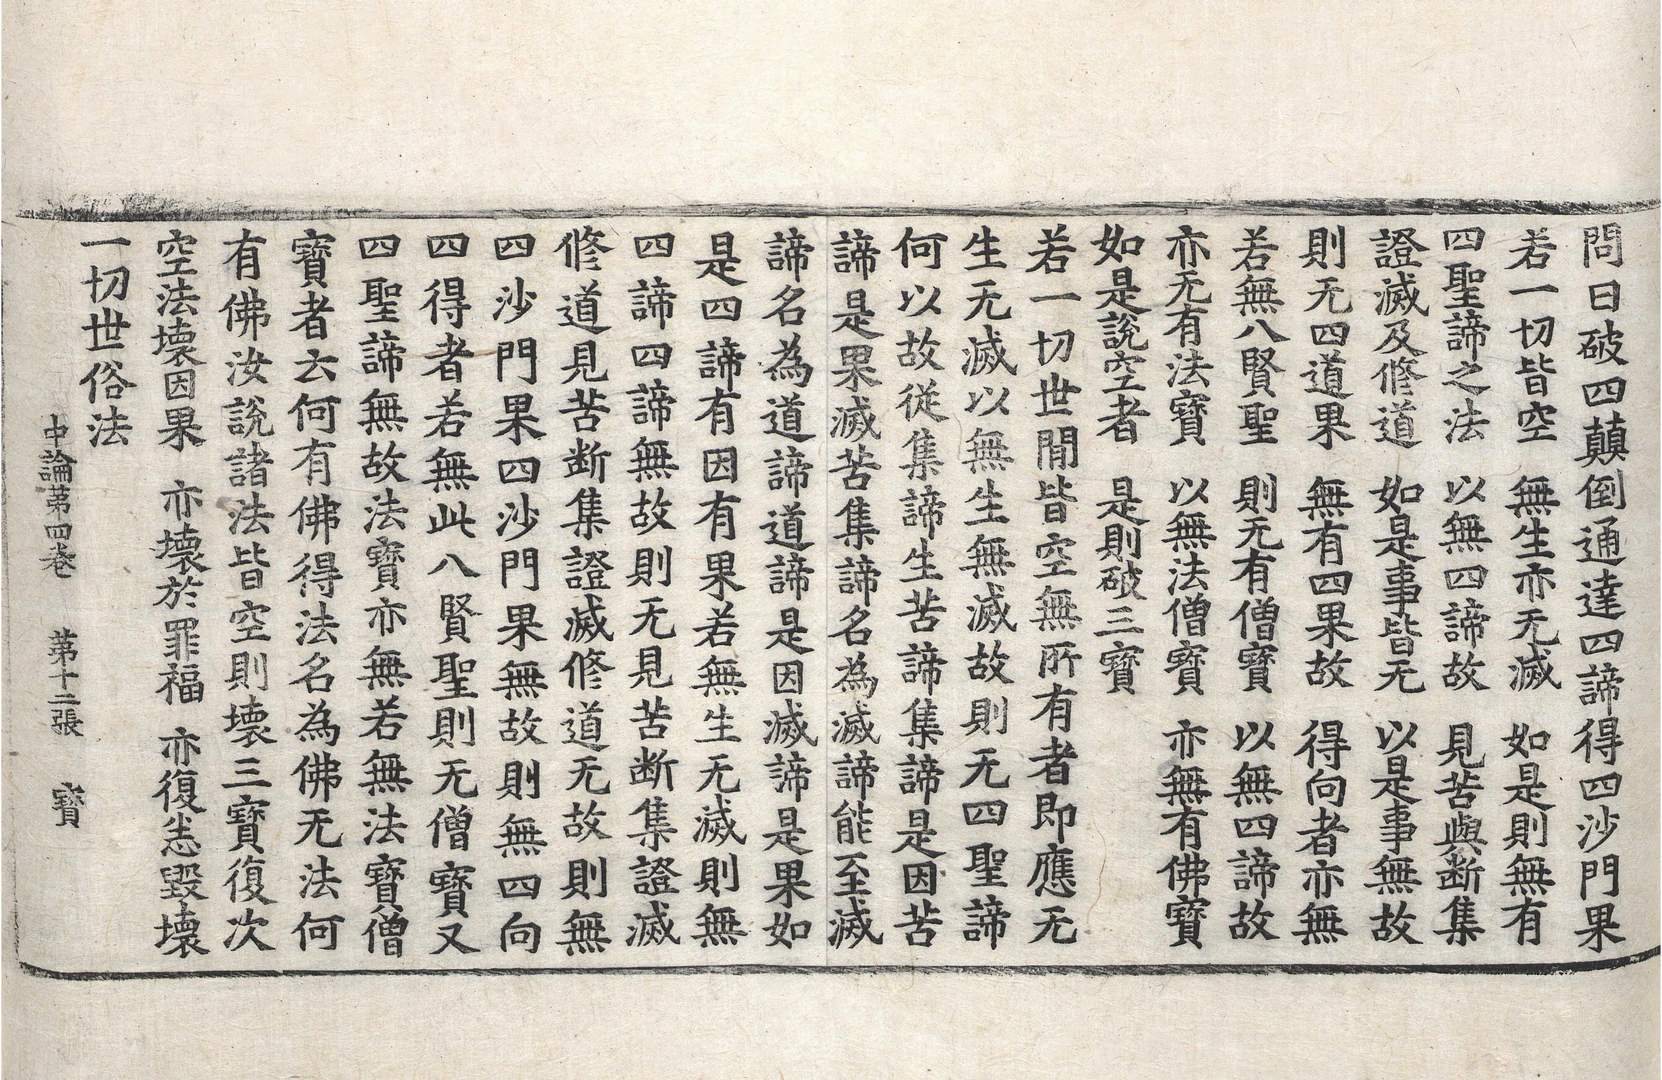 問曰破四顛倒通達四諦得四沙門果
若一切皆空　無生亦无滅　如是則無有
四聖諦之法　以無四諦故　見苦與断集
證滅及修道　如是事皆无　以是事無故
則无四道果　無有四果故　得向者亦無
若無八賢聖　則无有僧寶　以無四諦故
亦无有法寶　以無法僧寶　亦無有佛寶
如是說空者　是則破三寶
若一切世閒皆空無所有者即應无
生无滅以無生無滅故則无四聖諦
何以故從集諦生苦諦集諦是因苦
諦是果滅苦集諦名為滅滅諦能至滅
諦名為道諦道諦是因滅諦是果如
是四諦有因有果若無生无滅則無
四諦四諦無故則无見苦断集證滅
修道見苦断集證滅修道无故則無
四沙門果四沙門果無故則無四向
四得者若無此八賢聖則无僧寶又
四聖諦無故法寶亦無若無法寶僧
寶者云何有佛得法名為佛无法何
有佛汝說諸法皆空則壞三寶復次
空法壞因果　亦壞於罪福　亦復悉毀壞
一切世俗法
中論第四卷　第十二張　寳